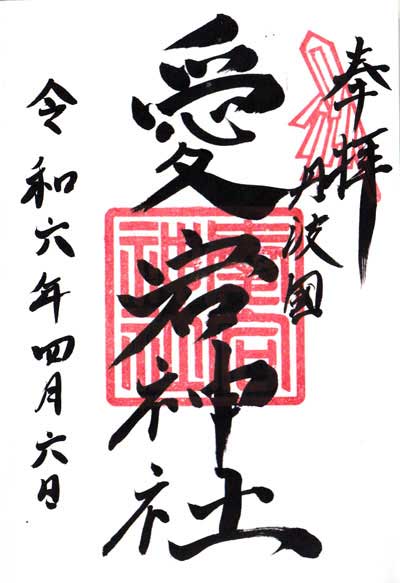 奉拝
丹波國
愛宕神社
愛宕
神社
令和六年四月六日